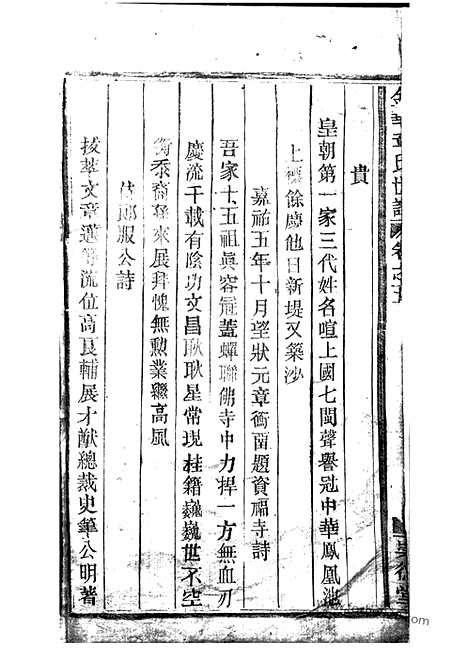 金華章氏世譜
卷之
貴
皇朝第一家三代姓名喧上國七閩聲譽冠中華鳳凰池
上 餘慶他日新堤又築沙
嘉祐五年十月望狀元章衡 題資福寺詩
吾家十五祖眞容冠蓋蟬聯佛寺中力捍一方無血刃
慶流千載有陰功文昌耿耿星常現桂籍巍巍世不空
衡忝裔孫來展拜愧無勲業繼高風
侍郎服公詩
拔萃文章選 流位高良輔展才猷總裁史筆公明著